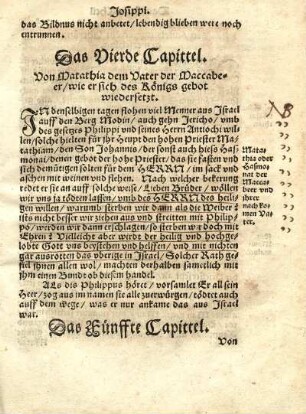 Josippi.
das Bildnus nicht anbetet/ lebendig blieben were noch
entrunnen.
Das Vierde Capittel.
Von Matathia dem Vater der Maccabe-
er/ wie er sich des Königs gebot
wiedersetzt.
IN denselbigen tagen flohen viel Menner aus Israel
auff den Berg Modin/ auch gehn Jericho/ umb
des gesetzs Philippi und seines Herrn Antiochi wil-
len/ solche hielten für ihr Heupt den hohen Priester Ma-
tathiam/ den Son Johannis/ der sonst auch hiess Has-
monai/ denen gebot der hohe Priester/ das sie fasten und
sich demütigen solten für dem HERRN/ im sack und
aschen mit weinen und flehen. Nach welcher bekerung
redet er sie an auff solche weise/ Lieben Brüder/ wöllen
wir uns ja tödten lassen/ umb des HERRN des heili-
gen willen/ warumb sterben wir dann als die Weiber?
ists nicht besser wir ziehen aus und streitten mit Philip-
po/ werden wir dann erschlagen/ so sterben wir doch mit
Ehren? Vielleicht aber wird der heilig und hochge-
lobet Gott uns beystehen und helffen/ und mit nichten
gar ausrotten das uberige in Israel/ Solcher Rath ge-
fiel ihnen allen wol/ machten derhalben sametlich mit
ihm einen Bund ob diesem handel.
Als dis Philippus höret/ versamlet Er all sein
Heer/ zog aus im namen sie alle zuerwürgen/ tödtet auch
auff dem wege/ was er nur ankame das aus Israel
war.
Das Fünffte Capittel.
Von
Mata-
thia oder
Hasmo
nai der
Macca-
beer und
ihrer
nachkom
men Va-
ter.